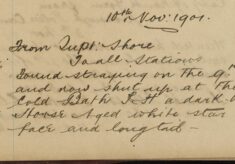 10th Nov: 1901.
From Supt: Shore
To all Stations
Found straying on the 9th
and now shut up at the
Cold Bath F.H a dark b
Horse Aged white star
face and long tail -